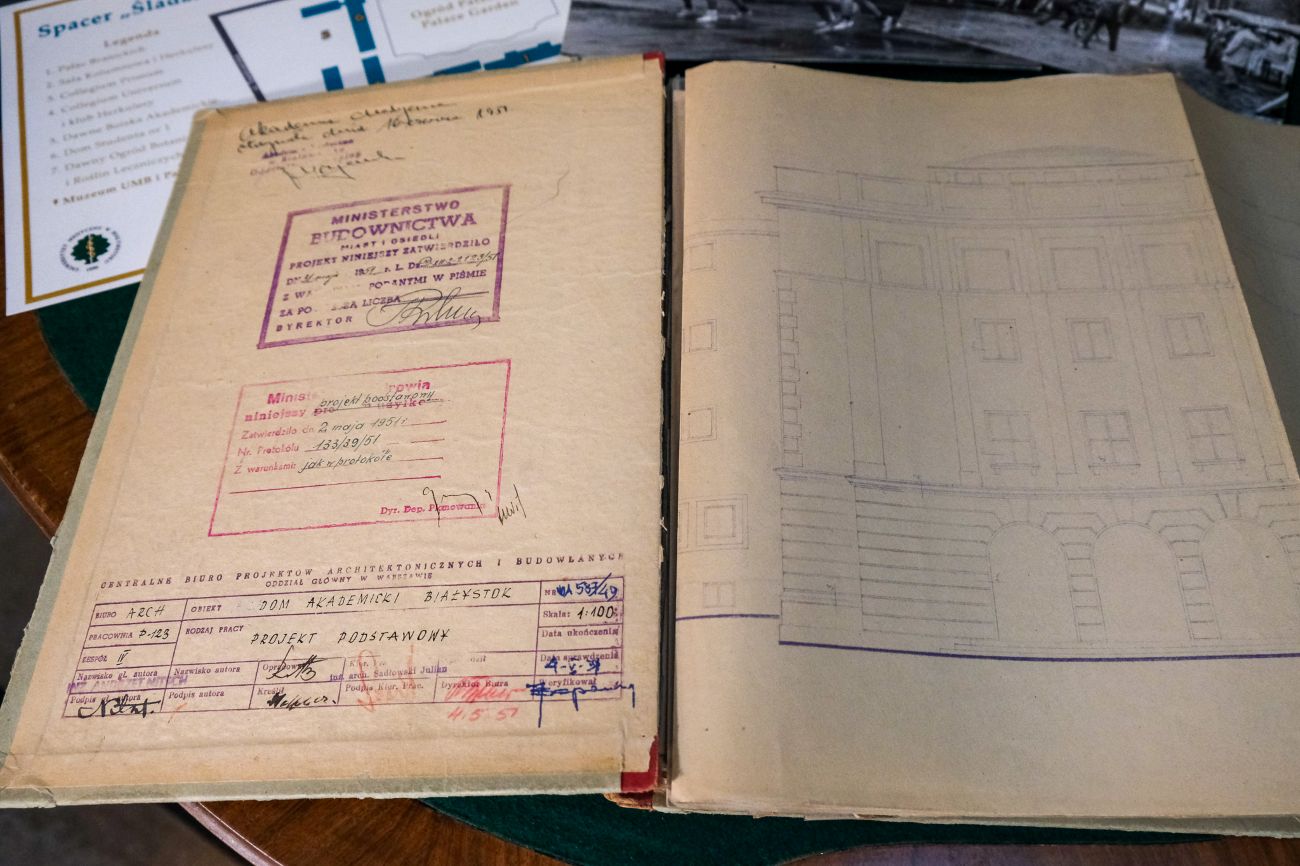 Spacer „Ślada
Legenda
1. Pałac Branickich
2. Sala Kolumnowa i Herkulesy
3. Collegium Primum
4. Collegium Universum
i klub Herkulesy
5. Dawne Boiska Akademickie
6. Dom Studenta nr 1
7. Dawny Ogród Botani
i Roślin Leczniczych
Muzeum UMB i Pa
Ogród Pała
Palace Garden
Akademia Medyczna
dnia 16 czerwca 1951
MINISTERSTWO
BUDOWNICTWA
MIAST I OSIEDLI
PROJEKT NINIEJSZY ZATWIERDZIŁO
DN. 31 maja 1951 r. L. Dz.
Z WA PODANYMI W PIŚMIE
ZA PO ŻSZĄ LICZBĄ
DYREKTOR
Minist rowia
niniejszy projekt podstawowy
Zatwierdziło dn. 2 maja 1951 r.
Nr. Protokółu 133/39/51
Z warunkami jak w protokóle
Dyr. Dep. Planowania
CENTRALNE BIURO PROJEKTÓW ARCHITEKTONICZNYCH I BUDOWLANYCH
ODDZIAŁ GŁÓWNY W WARSZAWIE
BIURO ARCH OBIEKT DOM AKADEMICKI BIAŁYSTOK NR 537/49
PRACOWNIA P-123 RODZAJ PRACY PROJEKT PODSTAWOWY Skala: 1:100
ZESPÓŁ IV Data ukończenia
Nazwisko gł. autora Nazwisko autora Opracował Kier. Data sprawdzenia
INŻ. ANDRZEJ NITSCH inż. arch. Sadłowski Julian 4-V-51
Podpis gł. autora Podpis autora Kreślił Podpis Kier. Prac. Dyrektor Biura Weryfikował
4.5.51